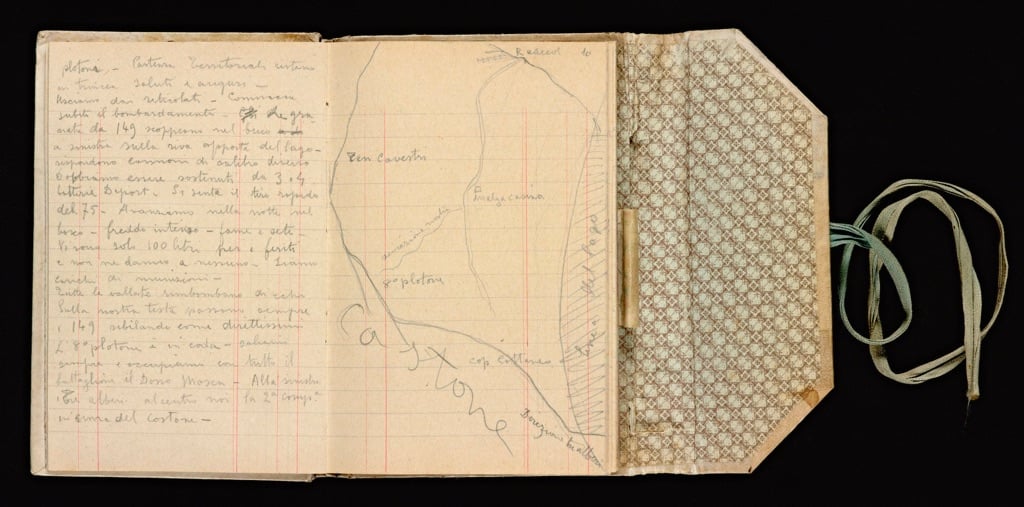 plotoni. - Passiamo Territoriali
in trincea saluti e auguri -
Usciamo dai reticolati - Comincia
subito il bombardamento - Le gra-
nate da 149 scoppiano nel bosco
a sinistra sulla riva opposta del lago -
rispondono cannoni di calibro diverso
Dobbiamo essere sostenuti da 3 o 4
batterie Deport - Si sente il tiro rapido
del 75 - Avanziamo nella notte nel
bosco - freddo intenso - fame e sete -
Vi sono solo 100 litri per i feriti
e non ne danno a nessuno - Siamo
carichi di munizioni -
Tutte le vallate rimbombano di echi
Sulla nostra testa passano sempre
i 149 sibilando come direttissimi
L'8° plotone è in coda - saliamo
sempre e occupiamo con tutto il
battaglione il Dosso Mosca - Alla sinistra
Tre alberi al centro noi la 2ª Compª
in cima del costone -
10
8° plotone
Costone
cap Cattaneo
Direzione tre alberi